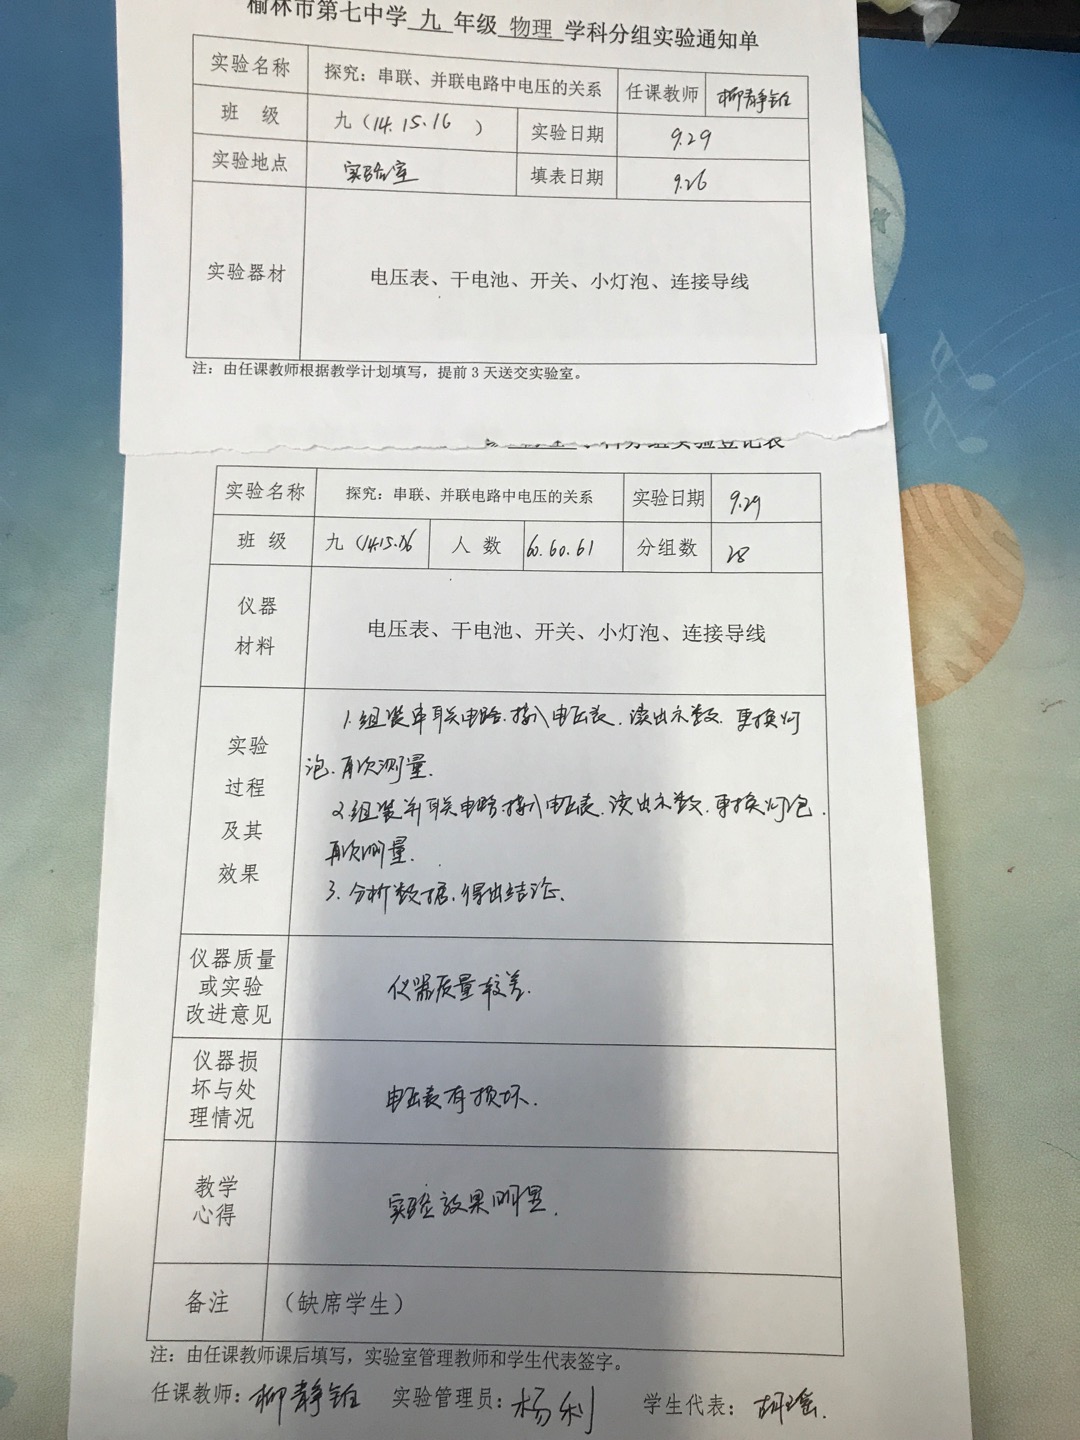 榆林市第七中学 九 年级 物理 学科分组实验通知单
实验名称 探究：串联、并联电路中电压的关系 任课教师 柳静
班 级 九（14.15.16 ） 实验日期 9.29
实验地点 实验室 填表日期 9.26
实验器材 电压表、干电池、开关、小灯泡、连接导线
注：由任课教师根据教学计划填写，提前 3 天送交实验室。
学科分组实验登记表
实验名称 探究：串联、并联电路中电压的关系 实验日期 9.29
班 级 九（14.15.16 人 数 60.60.61 分组数 28
仪器
材料
电压表、干电池、开关、小灯泡、连接导线
实验
过程
及其
效果
1.组装串联电路.接入电压表.读出示数.更换灯
泡.再次测量.
2.组装并联电路.接入电压表.读出示数.更换灯泡.
再次测量.
3.分析数据.得出结论.
仪器质量
或实验
改进意见
仪器质量较差.
仪器损
坏与处
理情况
电压表有损坏.
教学
心得
实验效果明显.
备注 （缺席学生）
注：由任课教师课后填写，实验室管理教师和学生代表签字。
任课教师：柳静 实验管理员：杨利 学生代表：胡瑶.